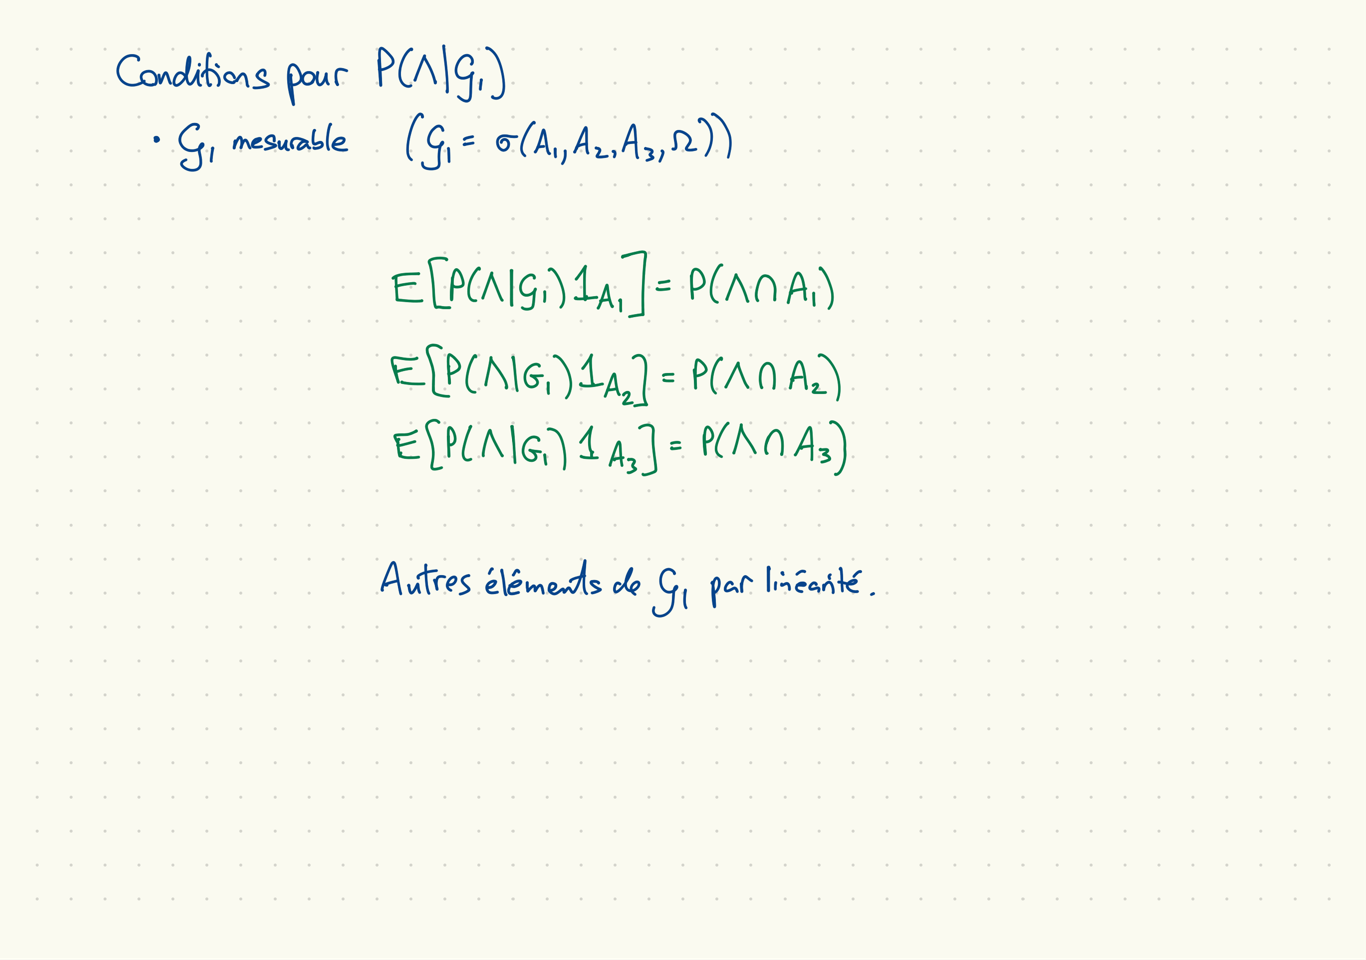 Conditions pour P(Λ|G₁)
• G₁ mesurable (G₁ = σ(A₁, A₂, A₃, Ω))
E[P(Λ|G₁) 𝟙_A₁] = P(Λ ∩ A₁)
E[P(Λ|G₁) 𝟙_A₂] = P(Λ ∩ A₂)
E[P(Λ|G₁) 𝟙_A₃] = P(Λ ∩ A₃)
Autres éléments de G₁ par linéarité.